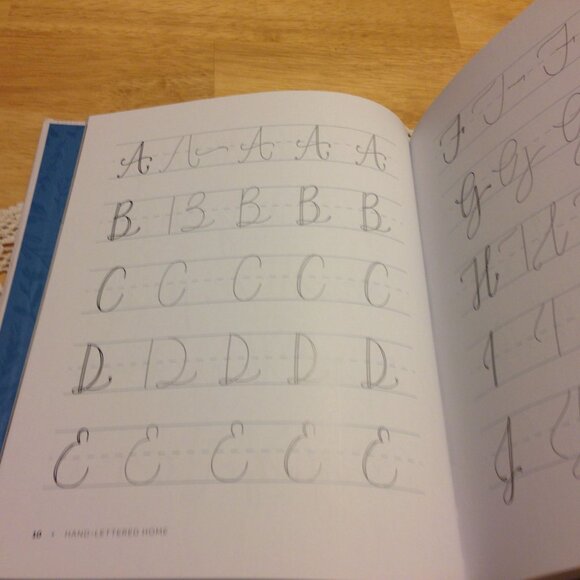 A A A A A
B B B B B
C C C C C
D D D D D
E E E E E
10 HAND-LETTERED HOME
F F F
G G G
H H
I I
J J